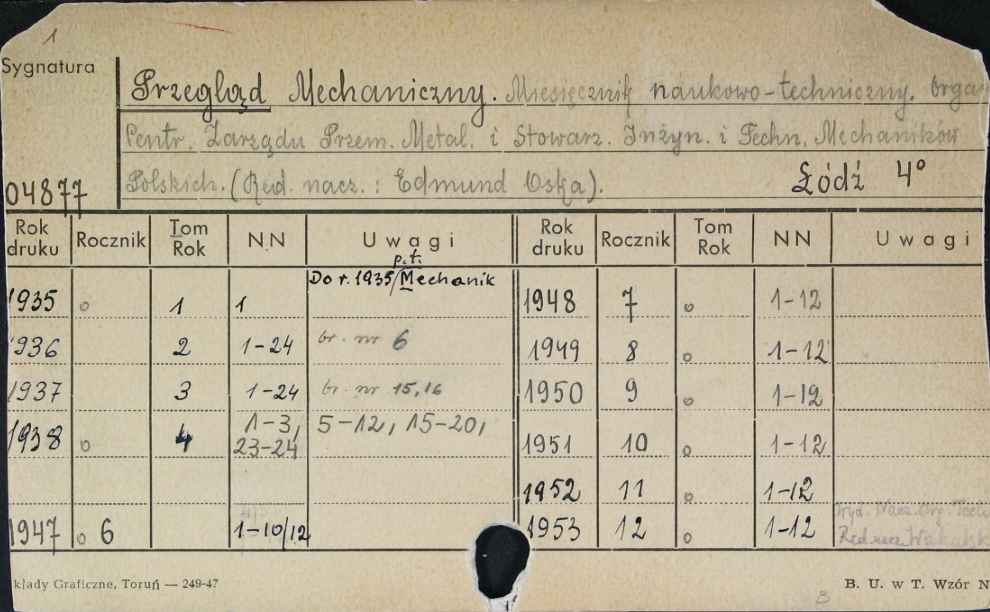 1
Sygnatura
Przegląd Mechaniczny. Miesięcznik naukowo-techniczny. Organ
Centr. Zarządu Przem. Metal. i Stowarz. Inżyn. i Techn. Mechaników
Polskich. (Red. nacz.: Edmund Oska). Łódź 4°
04877
Rok druku Rocznik Tom Rok NN Uwagi Rok druku Rocznik Tom Rok NN Uwagi
p.t.
Do r. 1935/Mechanik
1935 o 1 1 1948 7 o 1-12
1936 2 1-24 br. nr 6 1949 8 o 1-12
1937 3 1-24 br. nr 15,16 1950 9 o 1-12
1938 o 4 1-3, 5-12, 15-20, 23-24 1951 10 o 1-12
1952 11 o 1-12
1947 o 6 1-10/12 1953 12 o 1-12
kłady Graficzne, Toruń — 249-47 B. U. w T. Wzór N
3